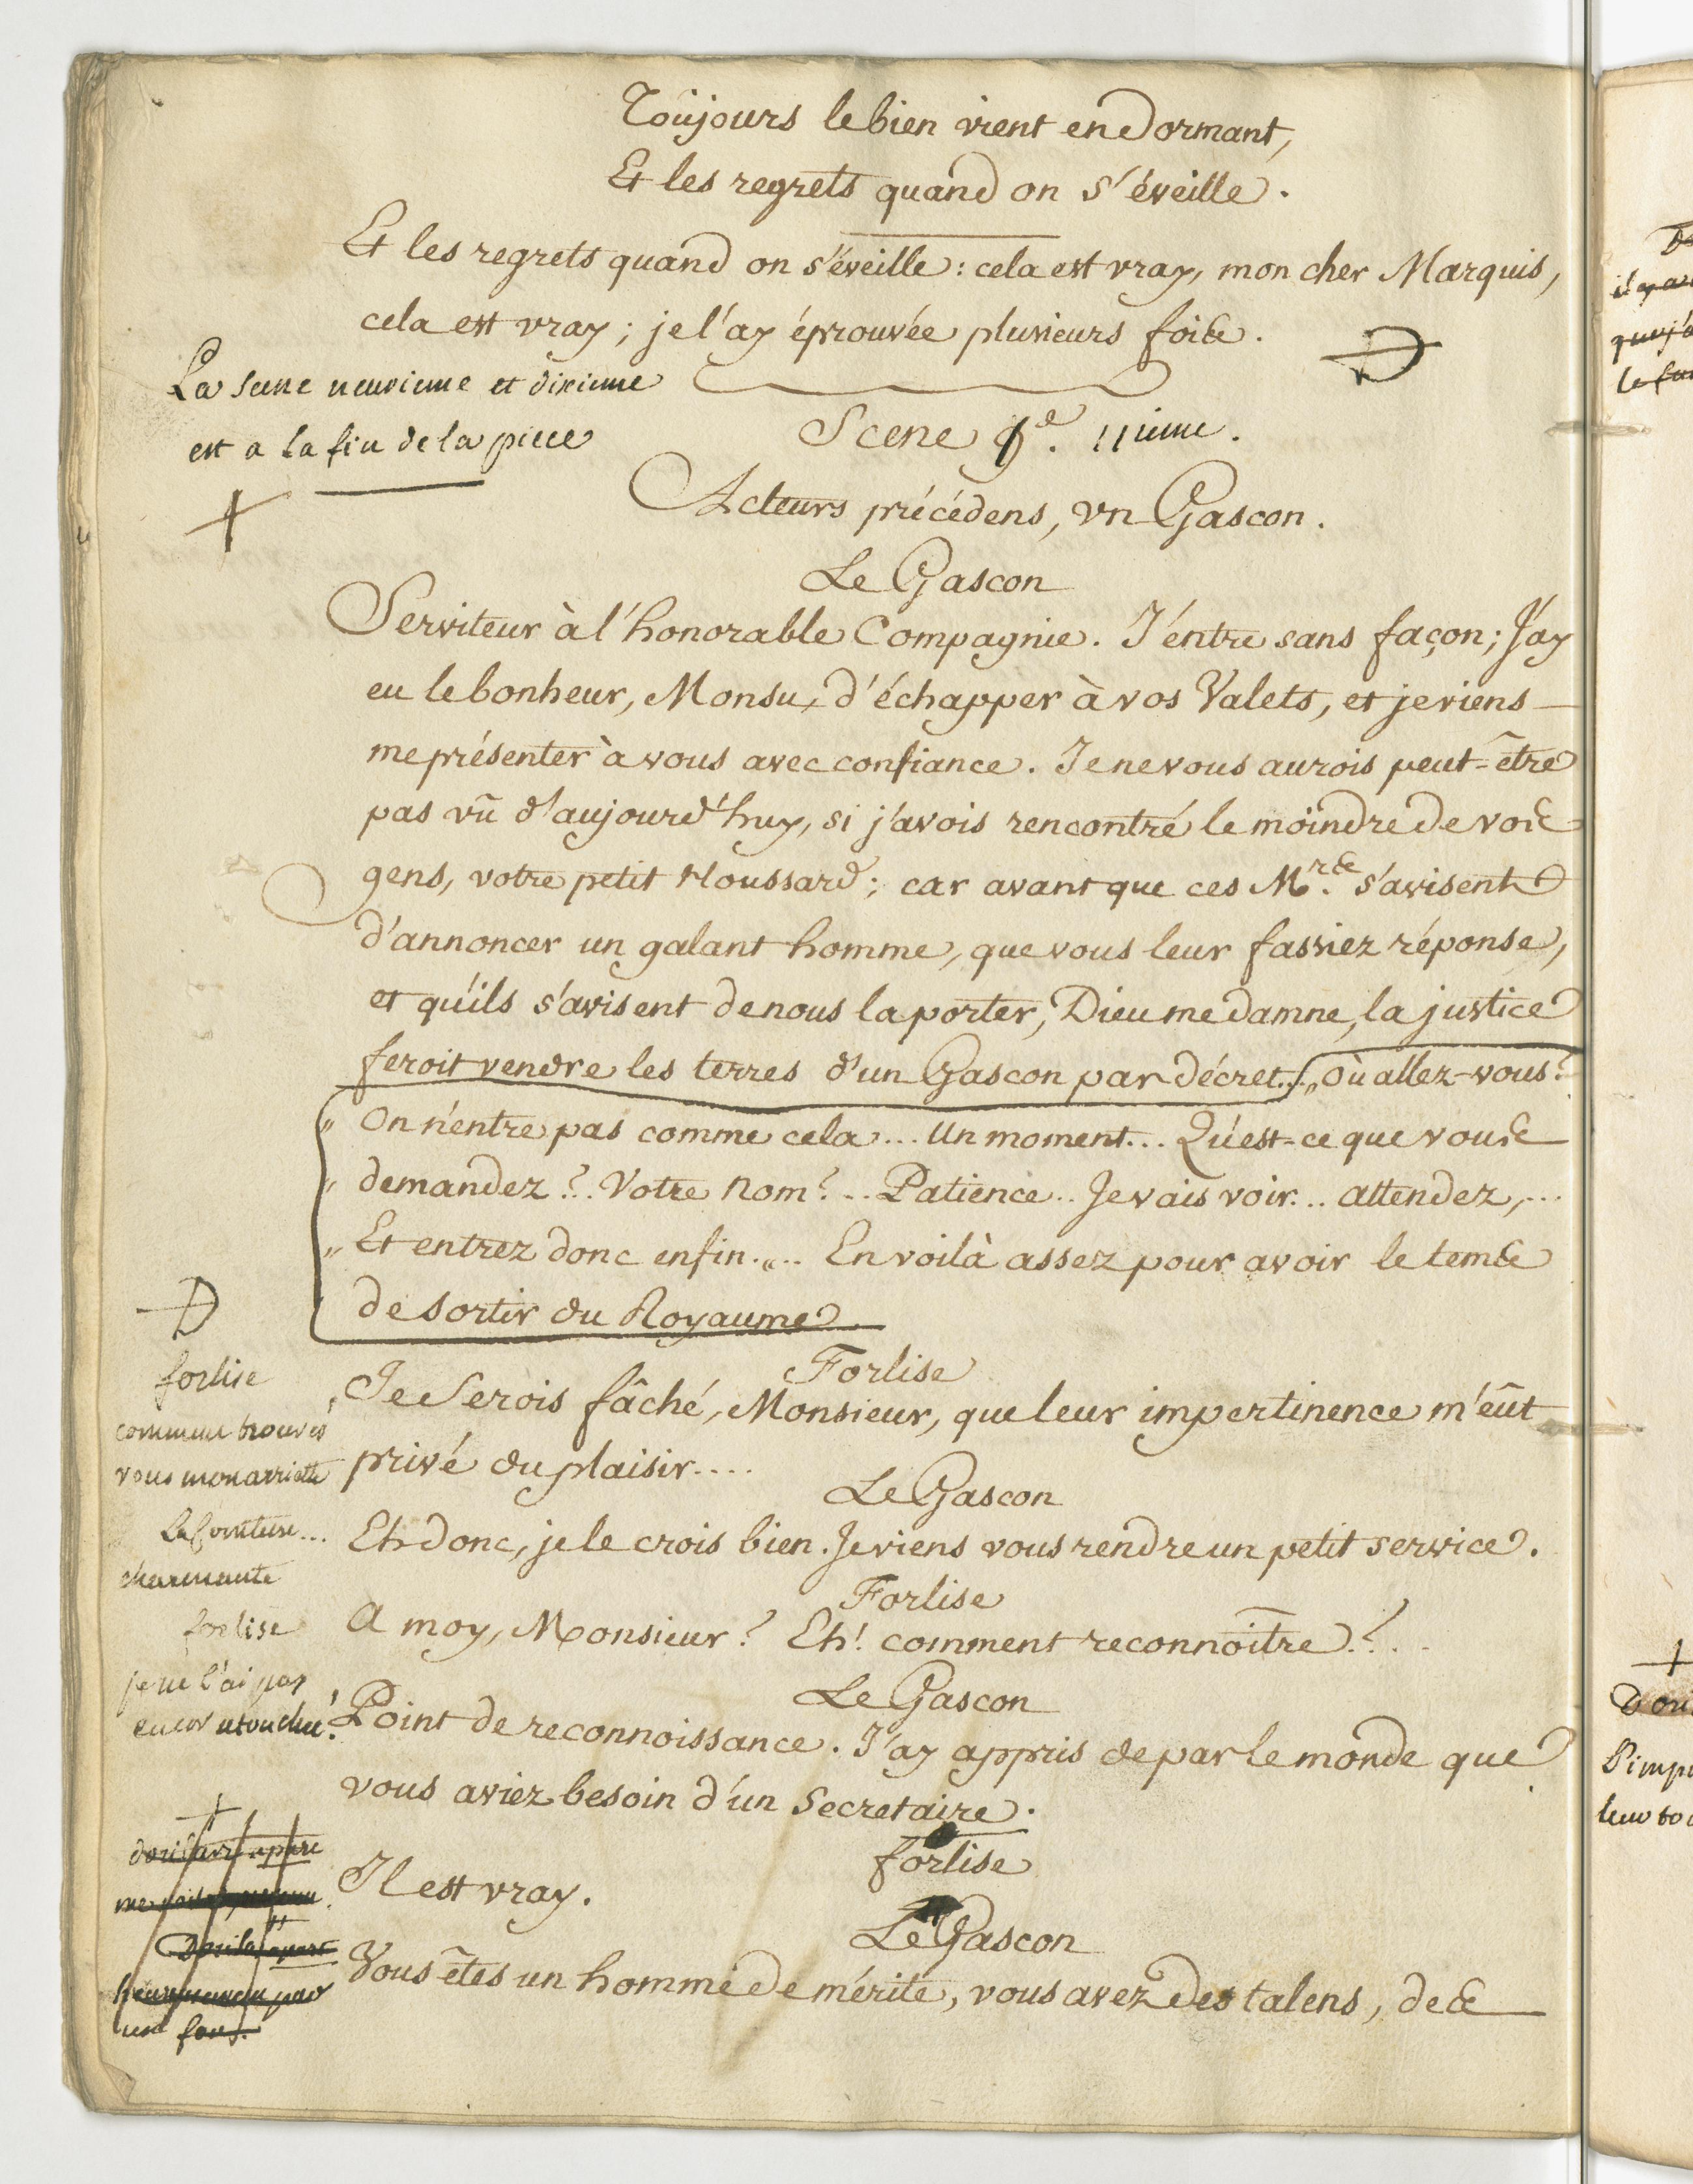 Toûjours le bien vient en dormant,
Et les regrets quand on s'éveille.
Et les regrets quand on s'éveille : cela est vray, mon cher Marquis,
cela est vray ; je l'ay éprouvée plusieurs fois.
La scene neuvieme et dixieme
est a la fin de la piece
Scene 9e. 11ieme.
Acteurs précédens, un Gascon.
Le Gascon
Serviteur à l'honorable Compagnie. J'entre sans façon ; J'ay
eu le bonheur, Monsu, d'échapper à vos Valets, et je viens
me présenter à vous avec confiance. Je ne vous aurois peut-être
pas vû d'aujourd'huy, si j'avois rencontré le moindre de vos
gens, votre petit Houssard ; car avant que ces Mrs. s'avisent
d'annoncer un galant homme, que vous leur fassiez réponse,
et qu'ils s'avisent de nous la porter, Dieu me damne, la justice
feroit vendre les terres d'un Gascon par décret... „ Où allez-vous ?
„ On n'entre pas comme cela... Un moment... Qu'est-ce que vous
„ demandez ?.. Votre nom ?... Patience.. Je vais voir... attendez,...
„ Et entrez donc enfin.„.. En voilà assez pour avoir le tems
de sortir du Royaume.
Forlise
Je Serois fâché, Monsieur, que leur impertinence m'eût
privé du plaisir....
forlise
comment trouvés
vous mon arriette
charmante
forlise
je ne l'ai pas
Le Gascon
Eh donc, je le crois bien. Je viens vous rendre un petit service.
Forlise
A moy, Monsieur ? Eh ! comment reconnoître ?..
Le Gascon
Point de reconnoissance. J'ay appris de par le monde que
vous aviez besoin d'un Secretaire.
forlise
Il est vray.
Le Gascon
Vous êtes un homme de mérite, vous avez des talens, des